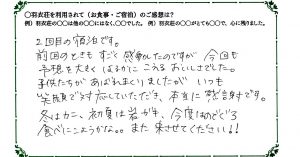 ○羽衣荘を利用されて（お食事・ご宿泊）のご感想は？
例）羽衣荘の○○は他の○○にはなく、○○でした。 例）羽衣荘の○○がとても○○で、心に残りました。
2回目の宿泊です。
前回のときもすごく感動したのですが 今回も
予想を大きくはるかに こえる おいしさでした。
子供たちが あばれまくりましたが いつも
笑顔で対応していただき、本当に感謝です。
冬はカニ、初夏は岩がき、今度はのどぐろ
食べにこようかな。。また 来させてください!!